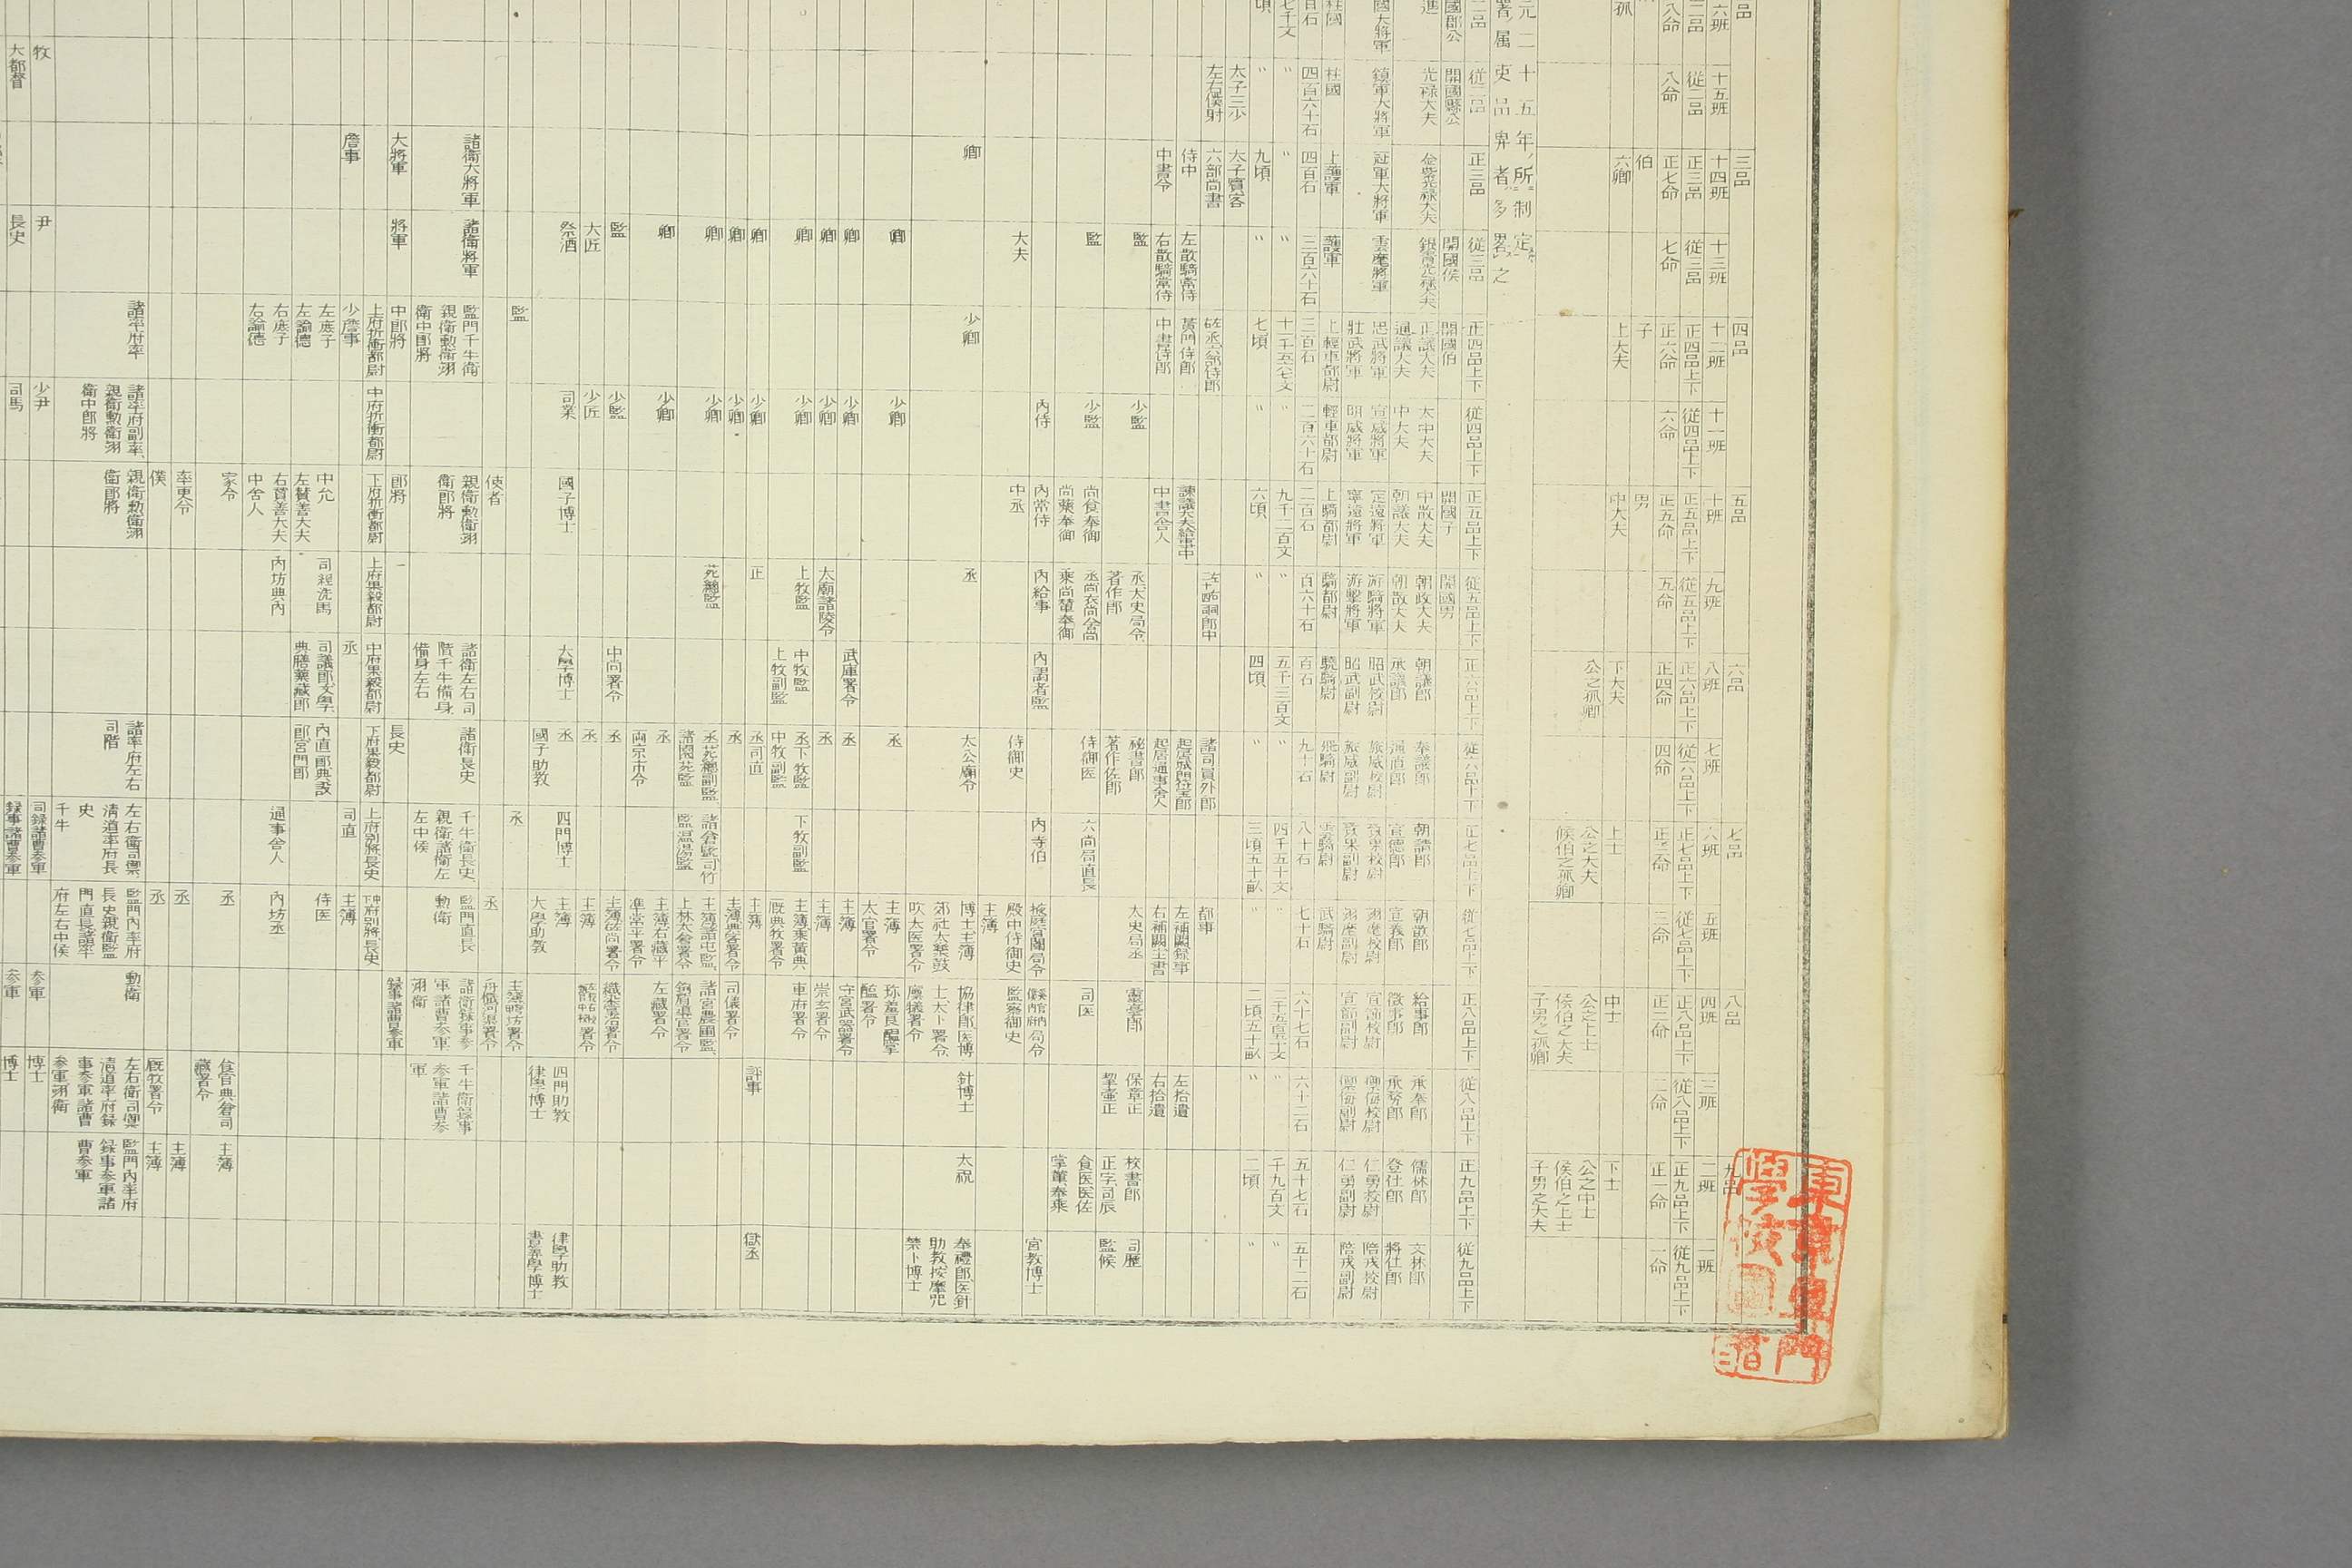 品 三品 四品 五品 六品 七品 八品 九品
六班 十五班 十四班 十三班 十二班 十一班 十班 九班 八班 七班 六班 五班 四班 三班 二班 一班
二品 從二品 正三品 從三品 正四品上下 從四品上下 正五品上下 從五品上下 正六品上下 從六品上下 正七品上下 從七品上下 正八品上下 從八品上下 正九品上下 從九品上下
八命 八命 正七命 七命 正六命 六命 正五命 五命 正四命 四命 正三命 三命 正二命 二命 正一命 一命
伯 子 男
孤 六卿 上大夫 中大夫 下大夫 上士 中士 下士
公之孤卿 公之大夫 公之上士 公之中士
侯伯之孤卿 侯伯之大夫 侯伯之上士
子男之孤卿 子男之大夫
元二十五年所制定
署属吏品卑者多畧之
二品 從二品 正三品 從三品 正四品上下 從四品上下 正五品上下 從五品上下 正六品上下 從六品上下 正七品上下 從七品上下 正八品上下 從八品上下 正九品上下 從九品上下
國郡公 開國縣公 開國侯 開國伯 開國子 開國男
進 光祿大夫 金紫光祿大夫 銀青光祿大夫 正議大夫 太中大夫 中散大夫 朝政大夫 朝議郎 奉議郎 朝請郎 朝散郎 給事郎 承奉郎 儒林郎 文林郎
通議大夫 中大夫 朝議大夫 朝散大夫 承議郎 通直郎 宣德郎 宣義郎 徵事郎 承務郎 登仕郎 將仕郎
國大將軍 鎮軍大將軍 冠軍大將軍 雲麾將軍 忠武將軍 宣威將軍 定遠將軍 游騎將軍 昭武校尉 振威校尉 致果校尉 翊麾校尉 宣節校尉 禦侮校尉 仁勇校尉 陪戎校尉
壯武將軍 明威將軍 寧遠將軍 游擊將軍 昭武副尉 振威副尉 致果副尉 翊麾副尉 宣節副尉 禦侮副尉 仁勇副尉 陪戎副尉
柱國 柱國 上護軍 護軍 上輕車都尉 輕車都尉 上騎都尉 騎都尉 驍騎尉 飛騎尉 雲騎尉 武騎尉
百石 四百六十石 四百石 三百六十石 三百石 二百六十石 二百石 百六十石 百石 九十石 八十石 七十石 六十七石 六十二石 五十七石 五十二石
七千文 〃 〃 〃 〃 九千二百文 〃 五千三百文 〃 四千五十文 〃 〃 千九百文 〃
頃 〃 九頃 〃 七頃 〃 六頃 〃 四頃 〃 三頃五十畝 〃 二頃五十畝 〃 二頃 〃
太子三少 太子賓客
左右僕射 六部尚書 諸司員外郎 都事
侍中 左散騎常侍 黃門侍郎 左補闕錄事 左拾遺
中書令 右散騎常侍 中書侍郎 中書舍人 起居通事舍人 右補闕主書 右拾遺
監 少監 丞大史局令 秘書郎 太史局丞 靈臺郎 保章正 校書郎 司歷
著作郎 著作佐郎 挈壺正 正字司辰 監候
監 少監 尚食奉御 丞尚衣尚舍尚 侍御医 六尚局直長 司医 食医医佐
尚藥奉御 乘尚輦奉御 掌輦奉乘
內侍 內常侍 內給事 內謁者監 內寺伯 掖庭宮闈局令 宮教博士
大夫 中丞 侍御史 殿中侍御史 監察御史
主簿
卿 少卿 丞 太公廟令 博士主簿 協律郎医博 針博士 太祝 奉禮郎医針
郊社太樂鼓 士太卜署令 助教按摩咒
吹太医署令 廩犧署令 禁卜博士
卿 少卿 丞 主簿 珍羞良醞掌
太官署令 醢署令
卿 少卿 武庫署令 丞 主簿 守宮武器署令
卿 少卿 太廟諸陵令 丞 主簿 崇玄署令
卿 少卿 上牧監 中牧監 丞下牧監 下牧副監 主簿乘黃典 車府署令
上牧副監 中牧副監 厩典牧署令
卿 少卿 正 丞司直 主簿 評事 獄丞
卿 少卿 丞 主簿典客署令 司儀署令
卿 少卿 苑總監 丞苑總副監 諸倉監司竹 主簿諸屯監 諸宮農圃監
諸園苑監 監溫湯監 上林太倉署令 鉤盾導官署令
卿 少卿 丞 主簿右藏平 左藏署令
兩京市令 準常平署令
監 少監 中尚署令 丞 主簿左尚署令 織染掌冶署令
大匠 少匠 丞 主簿
祭酒 司業 國子博士 大學博士 丞 四門博士 主簿 四門助教 律學助教
國子助教 大學助教 律學博士 書算學博士
監 使者 丞 丞 主簿
舟檝河渠署令
諸衛大將軍 諸衛將軍 監門千牛衛 親衛勳衛翊 諸衛左右司 諸衛長史 千牛衛長史 監門直長 諸衛錄事參 千牛衛錄事
親衛勳衛翊 衛郎將 階千牛備身 親衛諸衛左 勳衛 軍諸曹參軍 參軍諸曹參
衛中郎將 備身左右 左中候 翊衛 軍
大將軍 將軍 中郎將 郎將 長史 錄事諸曹參軍
上府折衝都尉 中府折衝都尉 下府折衝都尉 上府果毅都尉 中府果毅都尉 下府果毅都尉 上府別將長史 中府別將長史
詹事 少詹事 丞 司直 主簿
左庶子 中允 司經洗馬 司議郎文學 內直郎典設 侍医
左諭德 左贊善大夫 典膳藥藏郎 郎宮門郎
右庶子 右贊善大夫 內坊典內 通事舍人 內坊丞
右諭德 中舍人
家令 丞 食官典倉司 主簿
藏署令
率更令 丞 主簿
僕 丞 厩牧署令 主簿
諸率府率 諸率府副率 親衛勳衛翊 諸率府左右 左右衛司禦 監門內率府 勳衛 左右衛司禦 監門內率府
親衛勳衛翊 衛郎將 司階 清道率府長 長史親衛監 清道率府錄 錄事參軍諸
衛中郎將 史 門直長諸率 事參軍諸曹 曹參軍
千牛 府左右中候 參軍翊衛
牧 尹 少尹 司錄諸曹參軍 參軍 博士
大都督 長史 司馬 錄事諸曹參軍 參軍 博士
東京專門學校圖書